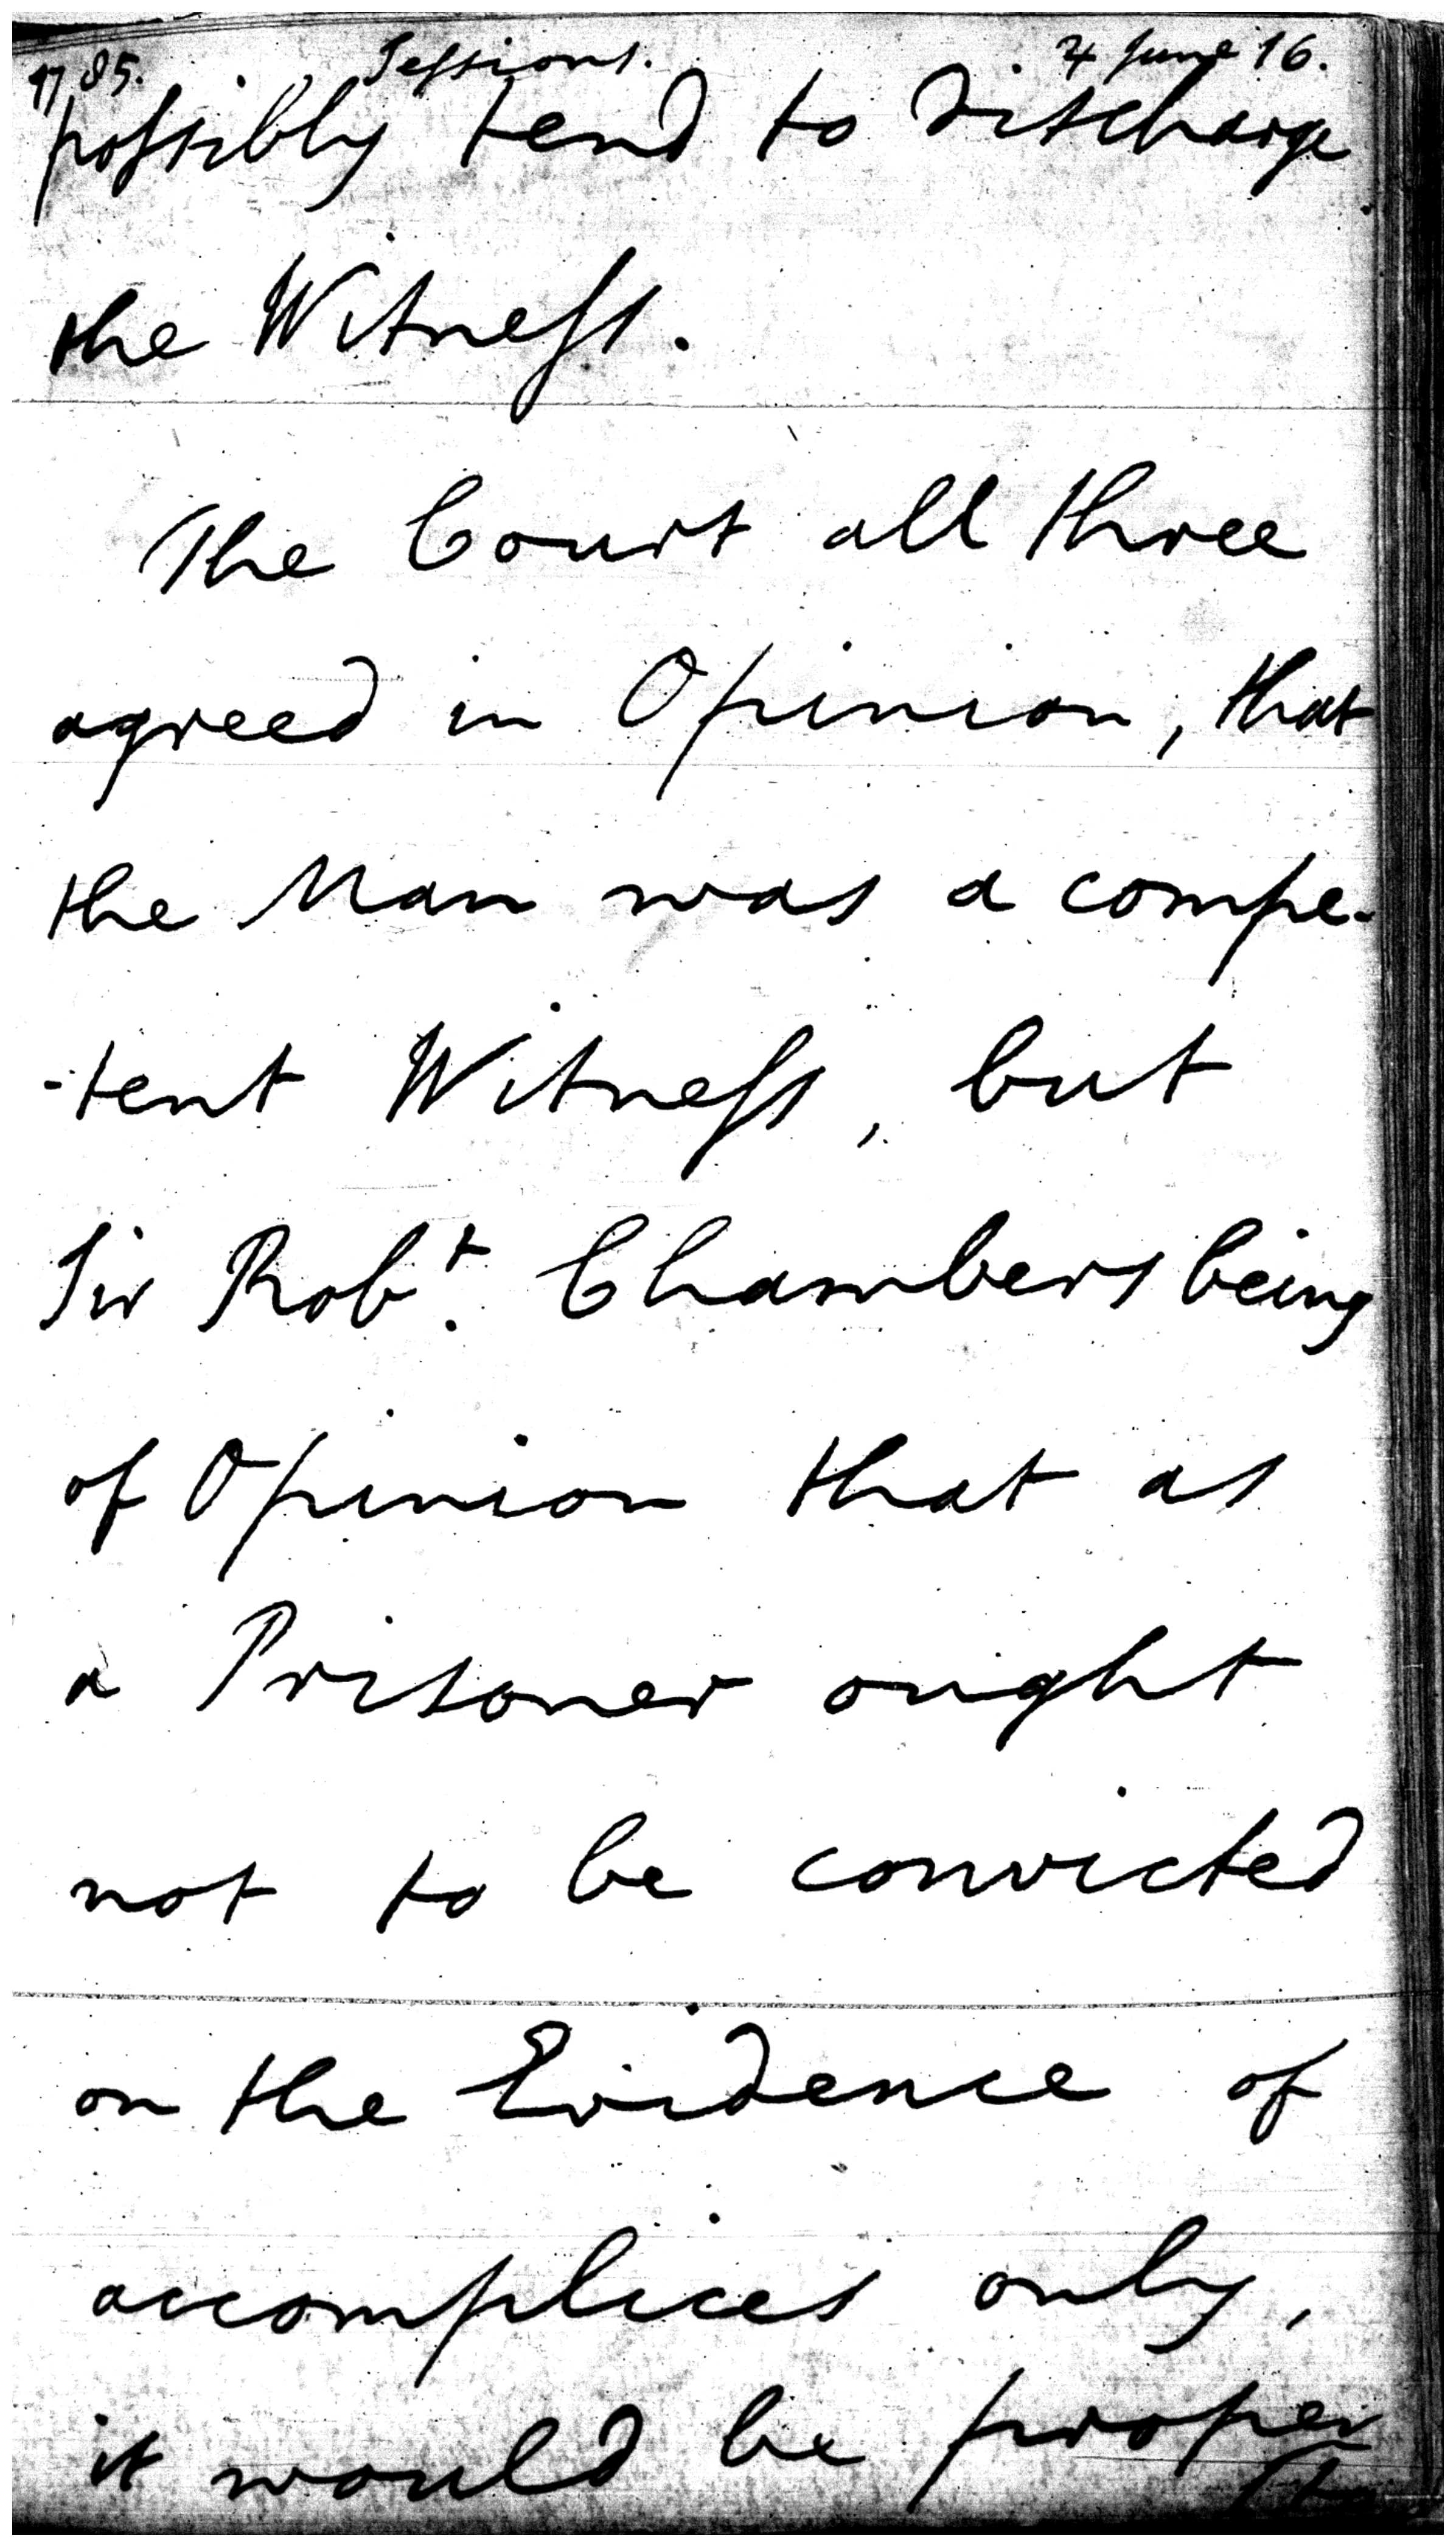 1785. Sessions. 4 June 16.
possibly tend to discharge
the Witness.
The Court all three
agreed in Opinion, that
the Man was a compe-
-tent Witness, but
Sir Robt. Chambers being
of Opinion that as
a Prisoner ought
not to be convicted
on the Evidence of
accomplices only,
it would be proper